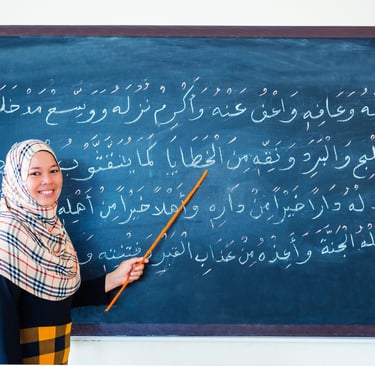 وَعَافِهِ وَاعْفُ عَنْهُ وَأَكْرِمْ نُزُلَهُ وَوَسِّعْ مَدْخَلَ
وَالْبَرَدِ وَنَقِّهِ مِنَ الْخَطَايَا كَمَا
لْهُ دَارًا خَيْرًا مِنْ دَارِهِ وَأَهْلًا خَيْرًا مِنْ أَهْلِهِ
لْهُ الْجَنَّةَ وَأَعِذْهُ مِنْ عَذَابِ الْقَبْرِ وَفِتْنَتِهِ وَ